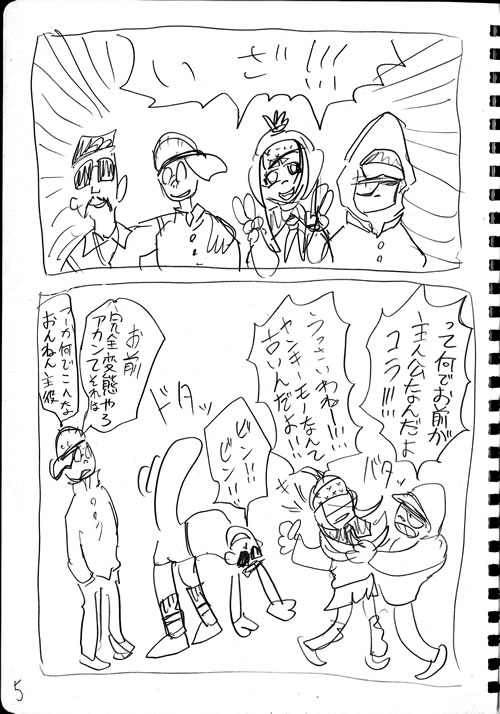 いざ!!!
って何でお前が
主人公なんだよ
コラ!!!!
バタッ
うっさいわね!!!
ヤンキーモノなんて
古いんだよ!!
ビン!!
ビン!!
ドタッ
お前
完全変態やろ
アカンてそれは
つか何でこんな
おんねん主役
5